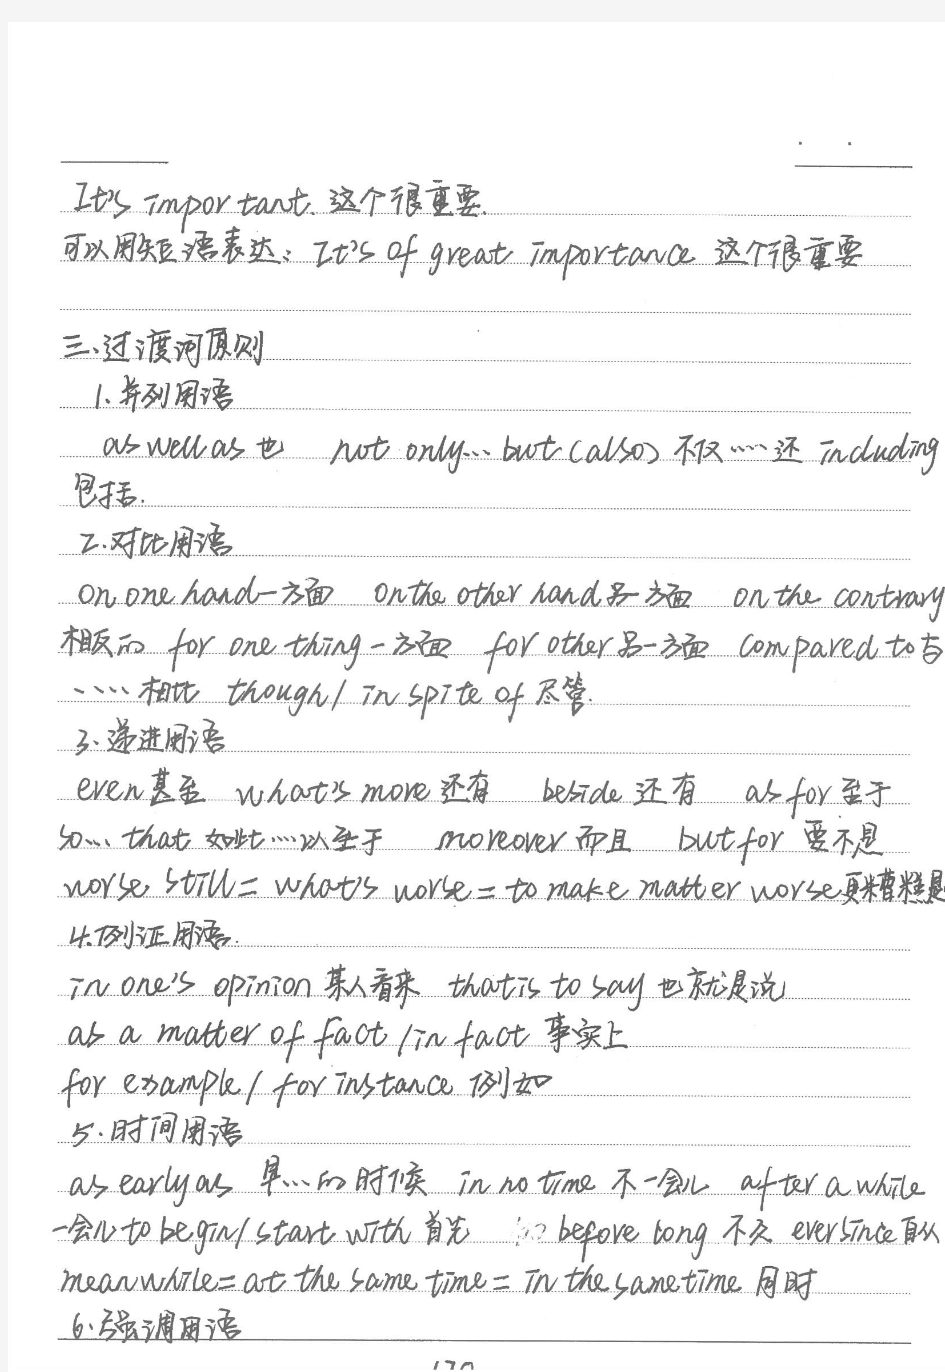 It's important. 这个很重要.
可以用短语表达: It's of great importance 这个很重要
三、过渡河原则
1. 并列用语
as well as 也 not only… but (also) 不仅……还 including
包括.
2. 对比用语
on one hand 一方面 on the other hand 另一方面 on the contrary
相反的 for one thing 一方面 for other 另一方面 compared to 与
……相比 though / in spite of 尽管.
3、递进用语
even 甚至 what's more 还有 beside 还有 as for 至于
so… that 如此……以至于 moreover 而且 but for 要不是
worse still = what's worse = to make matter worse 更糟糕是
4. 例证用语.
in one's opinion 某人看来 that is to say 也就是说
as a matter of fact / in fact 事实上
for example / for instance 例如
5. 时间用语
as early as 早…的时候 in no time 不一会儿 after a while
一会儿 to begin / start with 首先 before long 不久 ever since 自从
mean while = at the same time = in the same time 同时
6. 强调用语